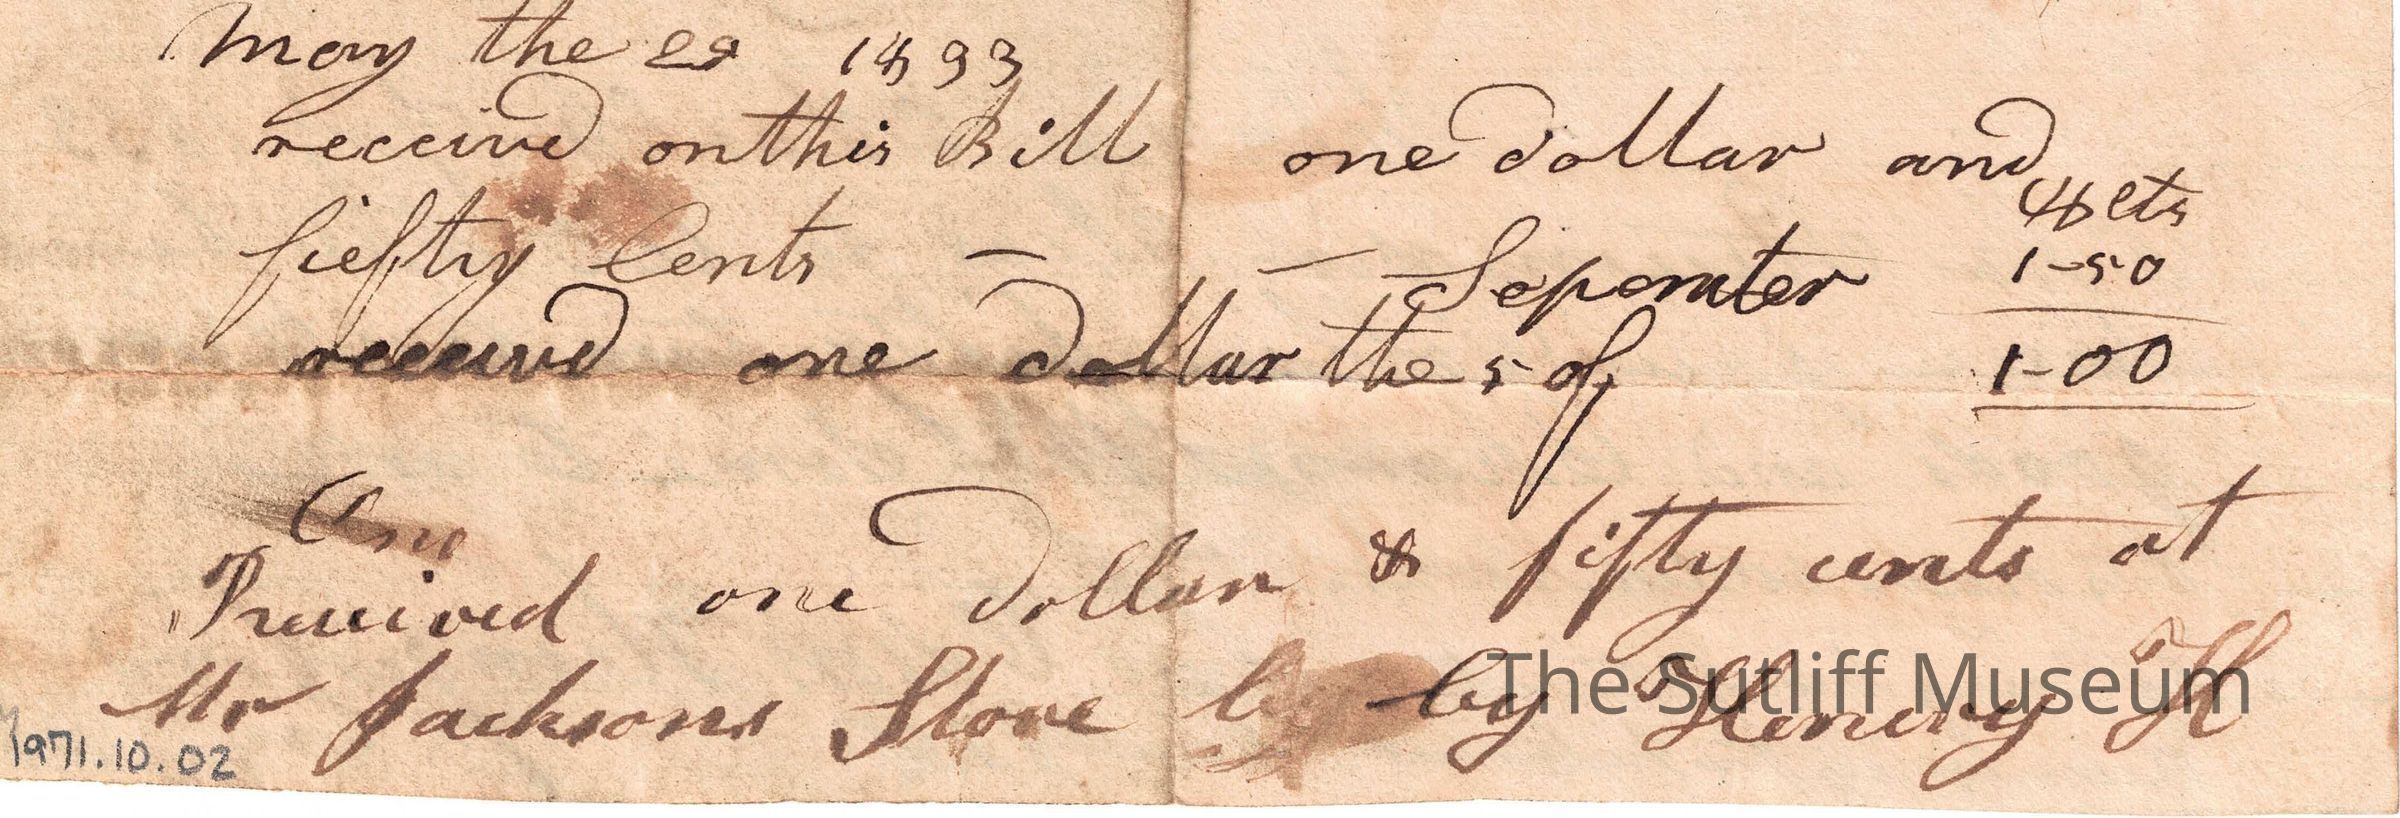 May the 29 1833
received on this Bill one dollar and
$ cts
fiefty Cents — — 1-50
Sepemter
received one dollar the 5 of 1-00
One
Received one Dollar & fifty cents at
Mr Jacksons Store by by Henery H
The Sutliff Museum
1971.10.02